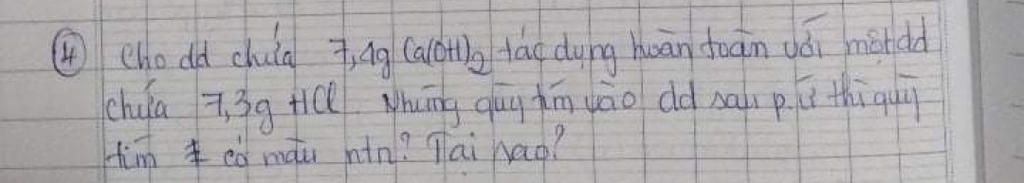 ④ Cho dd chứa 7,4g Ca(OH)2 tác dụng hoàn toàn với một dd
chứa 7,3g HCl. Nhúng quỳ tím vào dd sau p.ứ thì quỳ
tím có màu ntn? Tại sao?